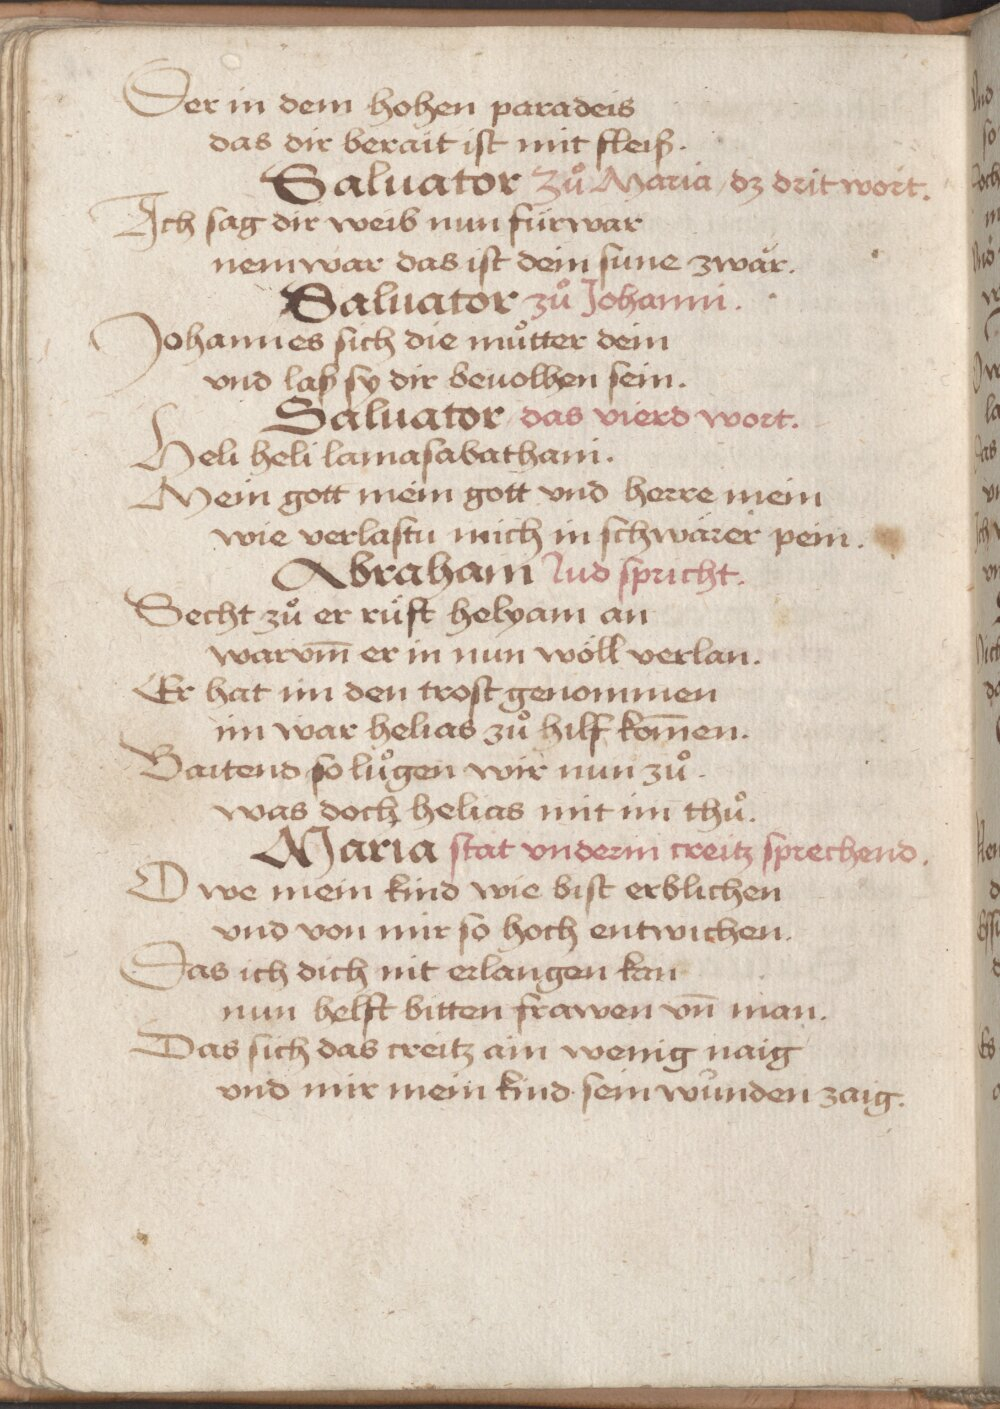 Der in dem hohen paradeis
das dir berait ist mit fleiß.
Saluator zů Maria / dz drit wort.
Ich sag dir weib nun fürwar
nem war das ist dein sune zwar.
Saluator zů Johanni.
Johannes sich die můtter dein
vnd laß sy dir beuolhen sein.
Saluator / das vierd wort.
Heli heli lamasabathani.
Mein gott mein gott vnd herre mein
wie verlastu mich in schwärer pein.
Abraham Iud spricht.
Secht zů er rüft helyam an
warvm̄ er in nun wöll verlan.
Er hat im den trost genommen
im war helias zů hilf kom̄en.
Baitend so lůgen wir nun zů.
was doch helias mit im thů.
Maria stat vnderm creitz sprechend.
O we mein kind wie bist erblichen
vnd von mir so hoch entwichen.
Das ich dich nit erlangen kan
nun helft bitten frawen vn̄ man.
Das sich das creitz ain wenig naig
vnd mir mein kind sein wunden zaig.